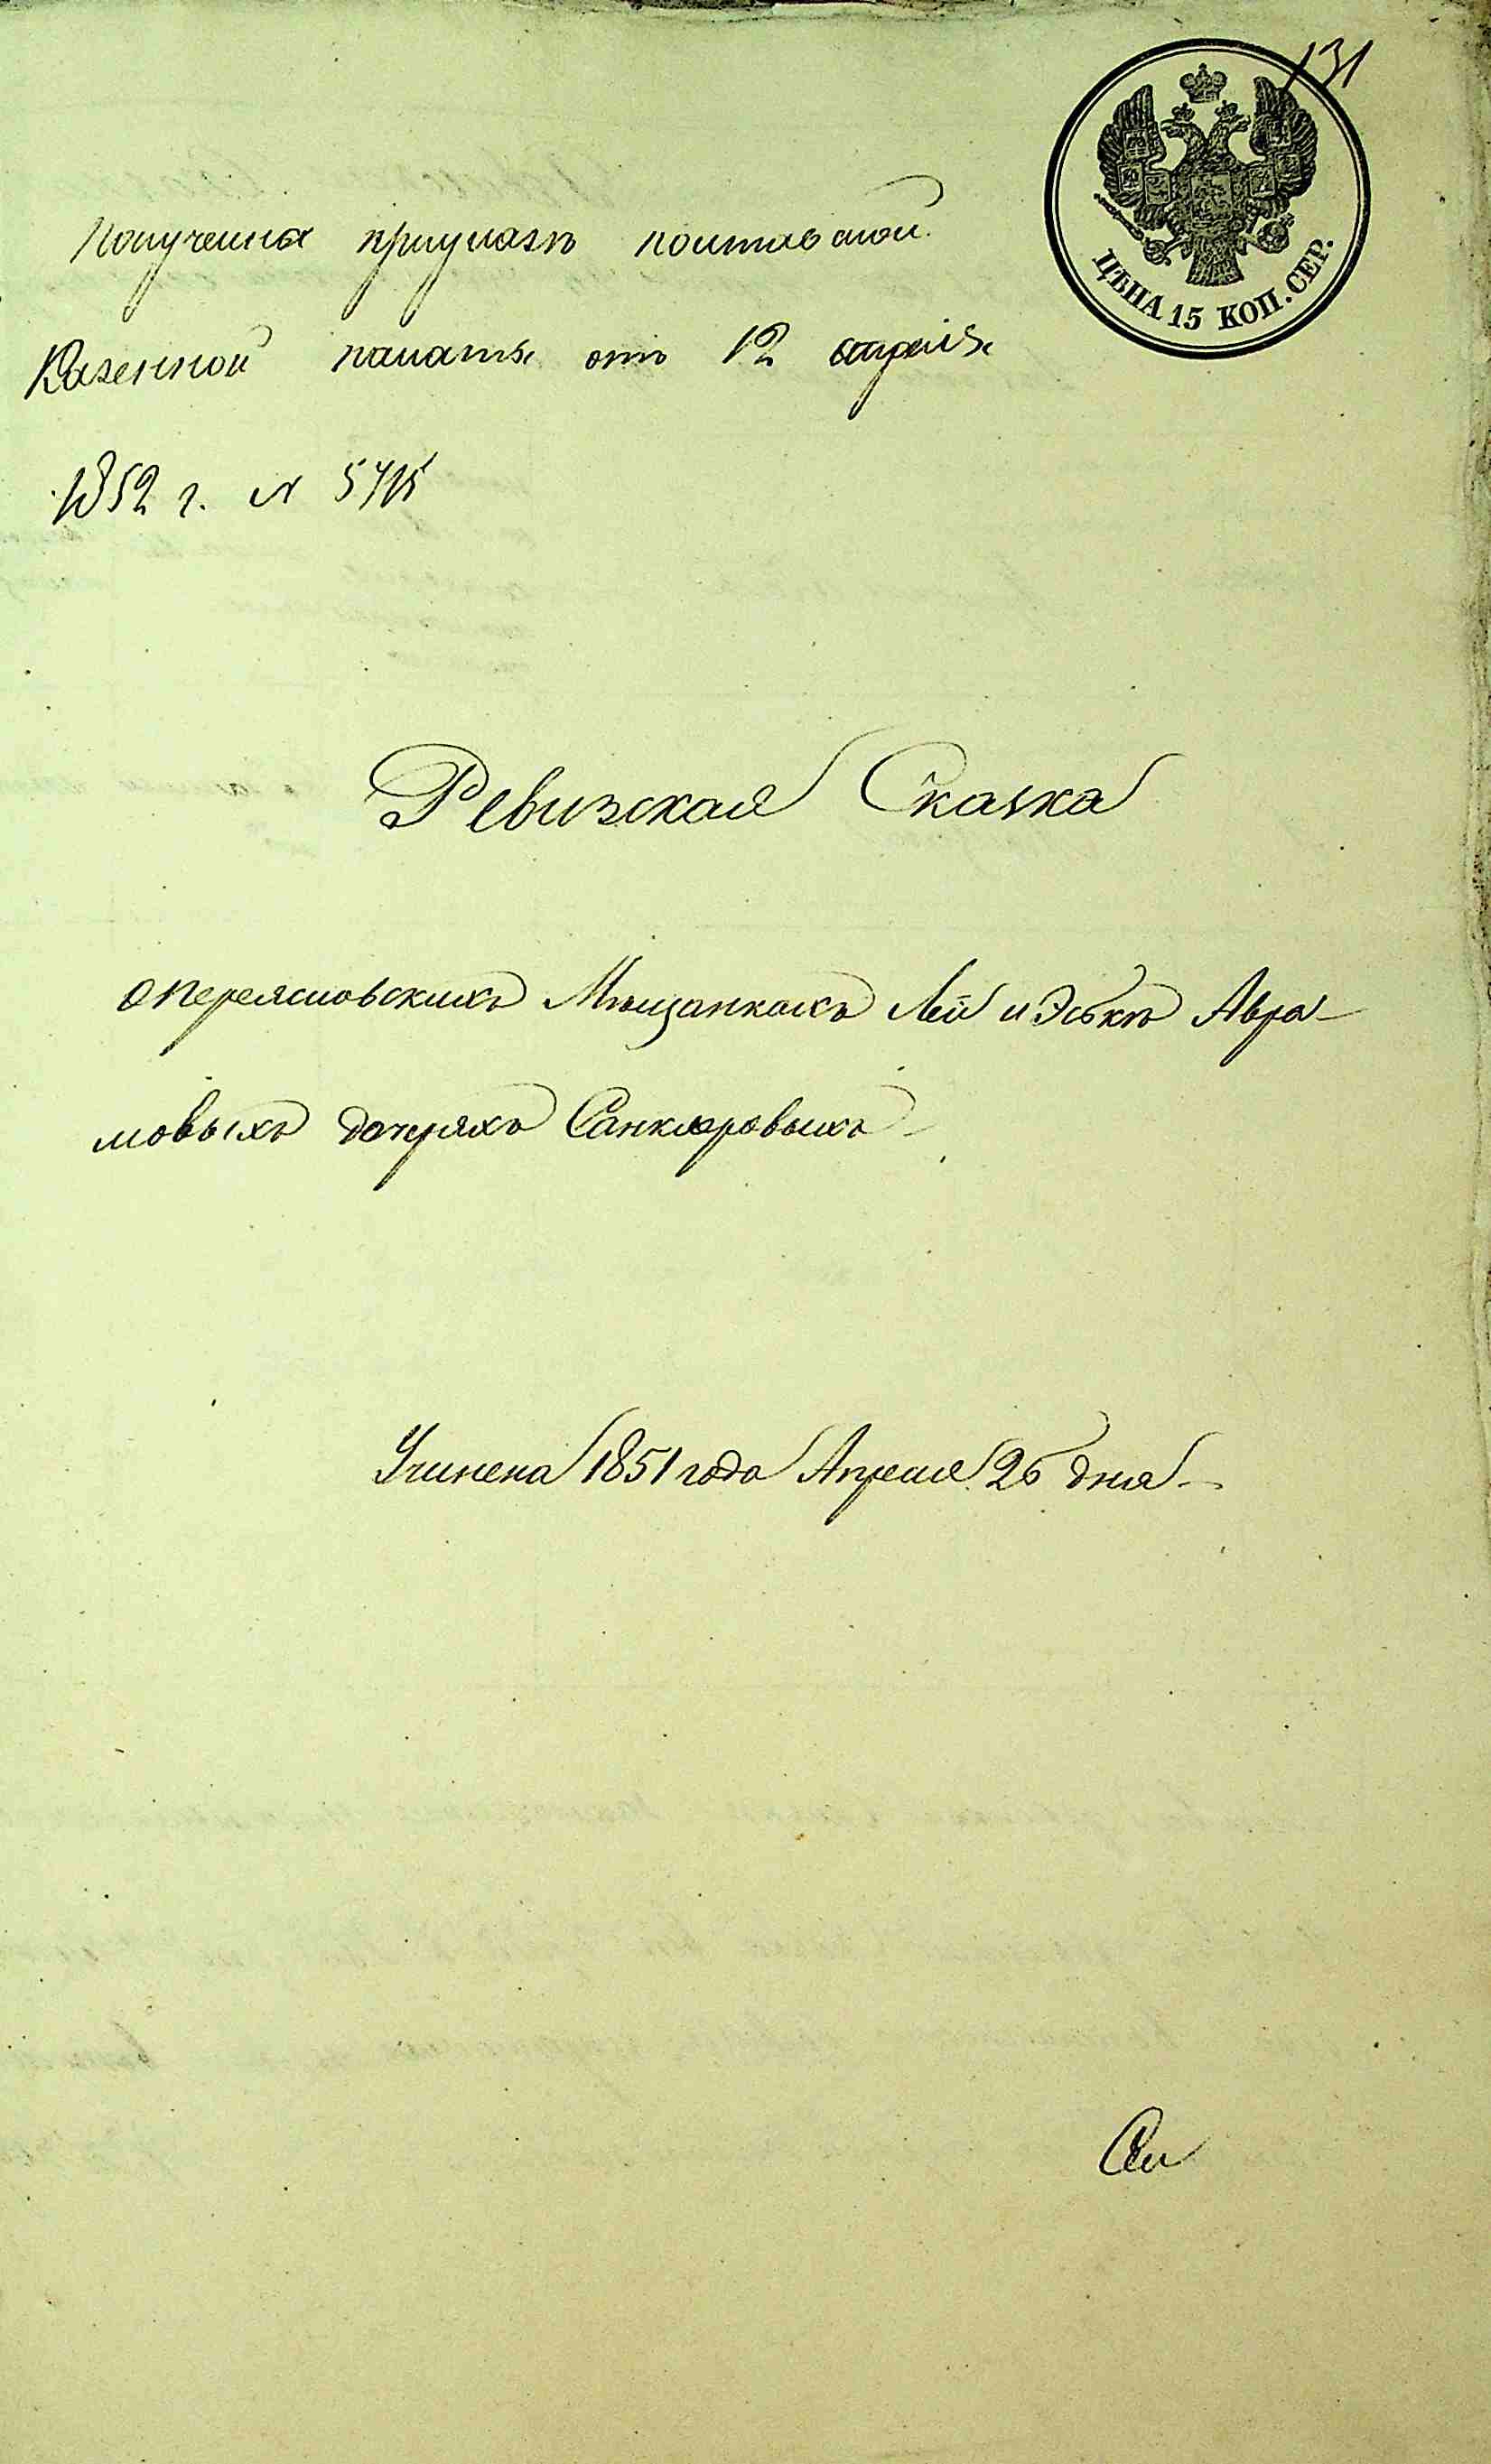 131
ЦѢНА 15 КОП. СЕР.
Полученна приуказѣ полтавской
Казенной палаты отъ 12 апреля
1852 г. N 5715
Ревизская Сказка
о переясловскихъ Мѣщанкахъ Леи и Эськѣ Авра-
мовыхъ дочеряхъ Санкляровыхъ
Учинена 1851 года Апреля 26 дня